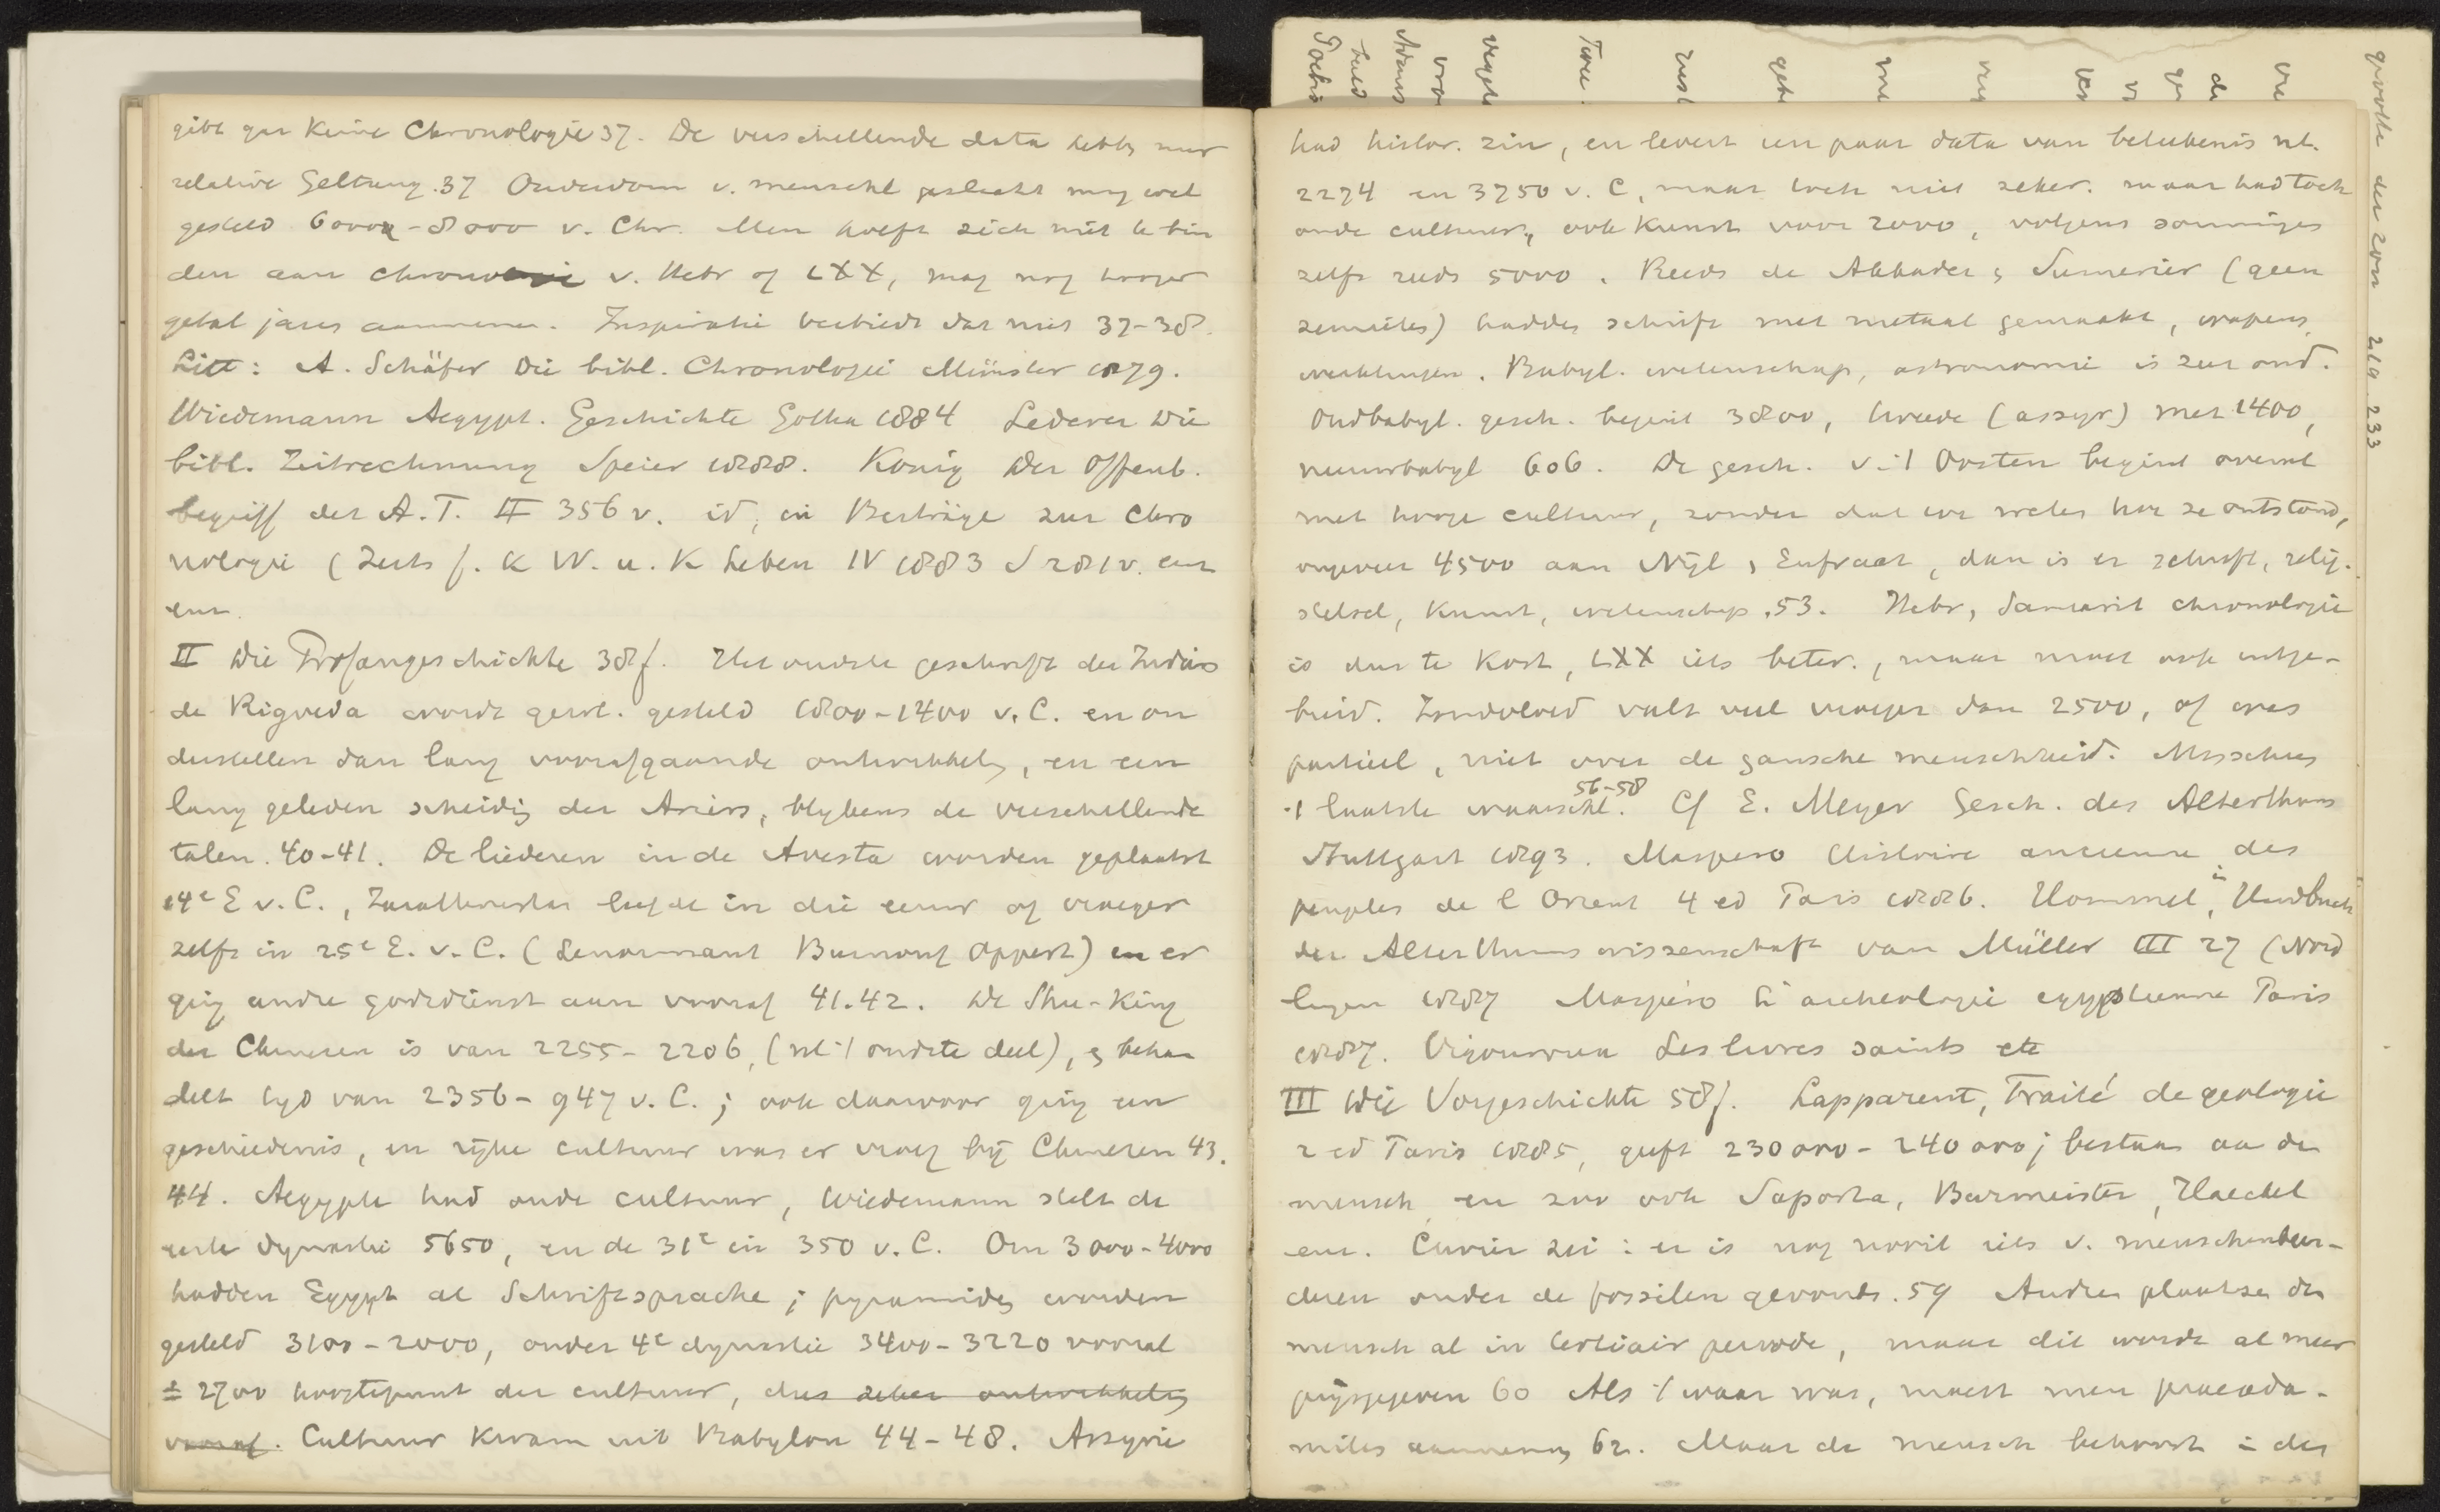 gibt gar keine Chronologie 37. De verschillende data hebben maar
relative Geltung. 37 Ouderdom v. menschl geslacht mag wel
gesteld 6000 - 8000 v. Chr. Men hoeft zich niet te bin
den aan chronologie v. Hebr of LXX, mag nog hooger
getal jaren aannemen. Inspiratie verbiedt dat niet 37-38.
Litt: A. Schäfer Die bibl. Chronologie Münster 1879.
Wiedemann Aegypt. Geschichte Gotha 1884 Lederer Die
bibl. Zeitrechnung Speier 1888. König Der Offenb.
begriff des A.T. II 356 v. id, in Beiträge zur Chro
nologie (Zeits f. K W. u. K Leben IV 1883 S 281 v. enz
enz.
II Die Profangeschichte 38 f. Het oudste geschrift der Indiërs
de Rigveda wordt gew. gesteld 1800-1400 v. C. en on
derstellen dan lang voorafgaande ontwikkeling, en een
lang geleden scheiding der Ariers, blykens de verschillende
talen. 40-41. De liederen in de Avesta worden geplaatst
14e E v. C., Zarathustra leefde in die eeuw of vroeger
zelfs in 25e E. v. C. (Lenormant Burnouf Oppert) en er
ging andre godsdienst aan vooraf 41.42. De Shu-King
der Chineezen is van 2255-2206, (nl 't oudste deel), & behan
delt tyd van 2356-947 v. C.; ook daarvoor ging een
geschiedenis, en rijke cultuur was er vroeg bij Chineezen 43.
44. Aegypte had oude cultuur, Wiedemann stelt de
eerste dynastie 5650, en de 31e in 350 v. C. Om 3000-4000
hadden Egypt al Schriftsprache; pyramiden worden
gesteld 3100-2000, onder 4e dynastie 3400-3220 vooral
± 2700 hoogtepunt der cultuur, dus zeker ontwikkeling
vooraf. Cultuur kwam uit Babylon 44-48. Assyrie
had histor. zin, en levert een paar data van beteekenis nl.
2274 en 3750 v. C, maar toch niet zeker. maar had toch
oude cultuur, ook kunst voor 2000, volgens sommigen
zelfs reeds 5000. Reeds de Akkader & Sumerier (geen
semieten) hadden schrift met metaal gemaakt, wapens,
werktuigen. Babyl. wetenschap, astronomie is zeer oud.
Oudbabyl. gesch. begint 3800, tweede (assyr) met 1400,
nieuwbabyl 606. De gesch. v. 't Oosten begint overal
met hooge cultuur, zonder dat we weten hoe ze ontstond,
ongeveer 4500 aan Nijl & Eufraat, dan is er schrift, relig.
stelsel, kunst, wetenschap. 53. Hebr, Samarit chronologie
is dus te kort, LXX iets beter, maar moet ook uitge-
breid. Zondvloed valt veel vroeger dan 2500, of was
partieel, niet over de gansche menschheid. Misschien
't laatste waarschl. 56-58 Cf E. Meyer Gesch. des Alterthums
Stuttgart 1893. Maspero Histoire ancienne des
peuples de l Orient 4 ed Paris 1886. Hommel, in Handbuch
der Alterthumswissenschaft van Müller III 27 (Nörd
lingen 1887 Maspéro L'archeologie egyptienne Paris
1887. Vigouroux Les livres saints etc
III Die Vorgeschichte 58 f. Lapparent, Traité de geologie
2 ed Paris 1885, geeft 230 000 - 240 000 j bestaan aan den
mensch en zoo ook Saporta, Burmeister, Haeckel
enz. Cuvier zei: er is nog nooit iets v. menschenbeen-
deren onder de fossilen gevonden. 59 Andren plaatsen den
mensch al in tertiair periode, maar dit wordt al meer
prijsgegeven 60 Als 't waar was, moest men praeada-
mieten aannemen 62. Maar de mensch behoort in der
grootte der zon 219. 233